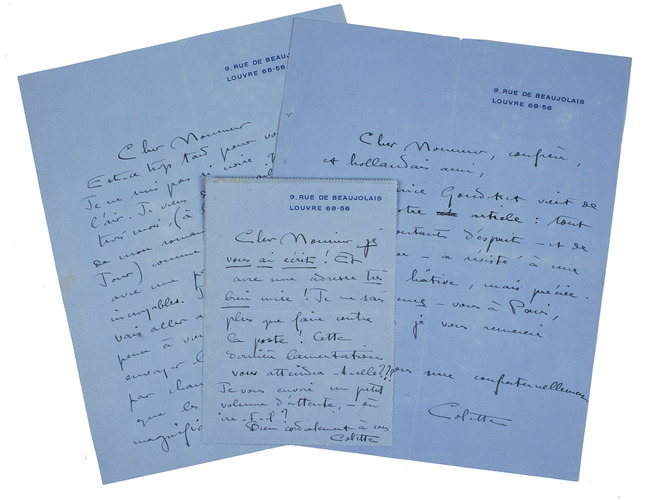 9, RUE DE BEAUJOLAIS
LOUVRE 68-56
Cher Monsieur
Est-ce trop tard pour
Je ne suis pas si noire
l'air. Je vous
trois mois, (à
de mon roman
Jour) comme
avec une
incroyables.
vais aller
peur à
envoyer
par
que les
magnifi
9, RUE DE BEAUJOLAIS
LOUVRE 68-56
Cher Monsieur, confrère,
et hollandais ami,
Goudeket vient de
article : tout
d'esprit – et de
– a résisté à une
hâtive, mais précise.
– vous à Paris,
je vous remercie
confraternellement
Colette
9, RUE DE BEAUJOLAIS
LOUVRE 68-56
Cher Monsieur, je
vous ai écrit ! Et
avec une adresse très
bien mise ! Je ne sais
plus que faire contre
la poste ! Cette
dernière lamentation
vous attendra-t-elle ??
Je vous envoie un petit
volume d'attente, – où
ira-t-il ?
Bien cordialement à vous
Colette